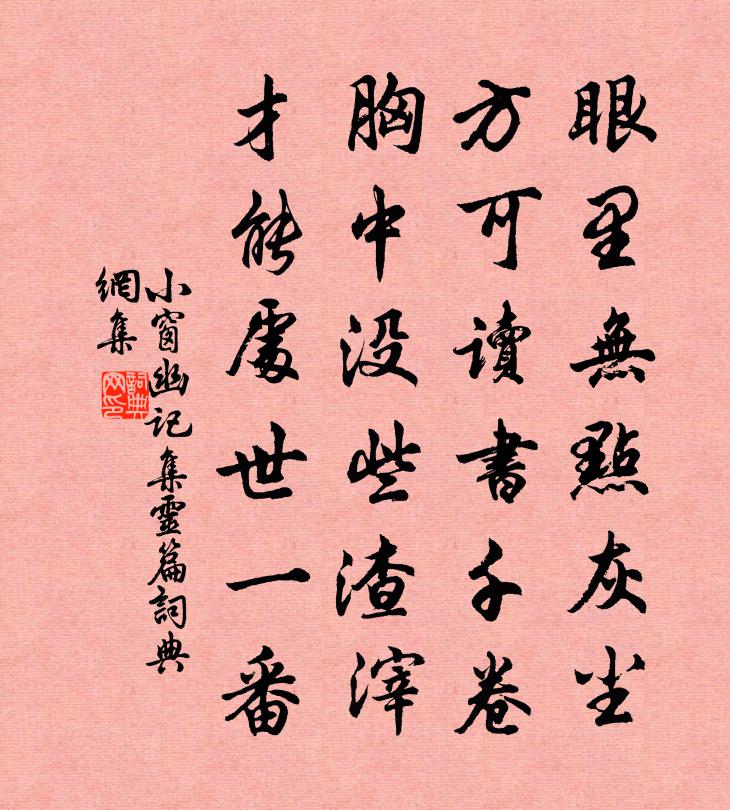 眼里無點灰尘
方可讀書千卷
胸中没些渣滓
才能處世一番
小窗幽記集靈篇詞典
網集
詞典
网印